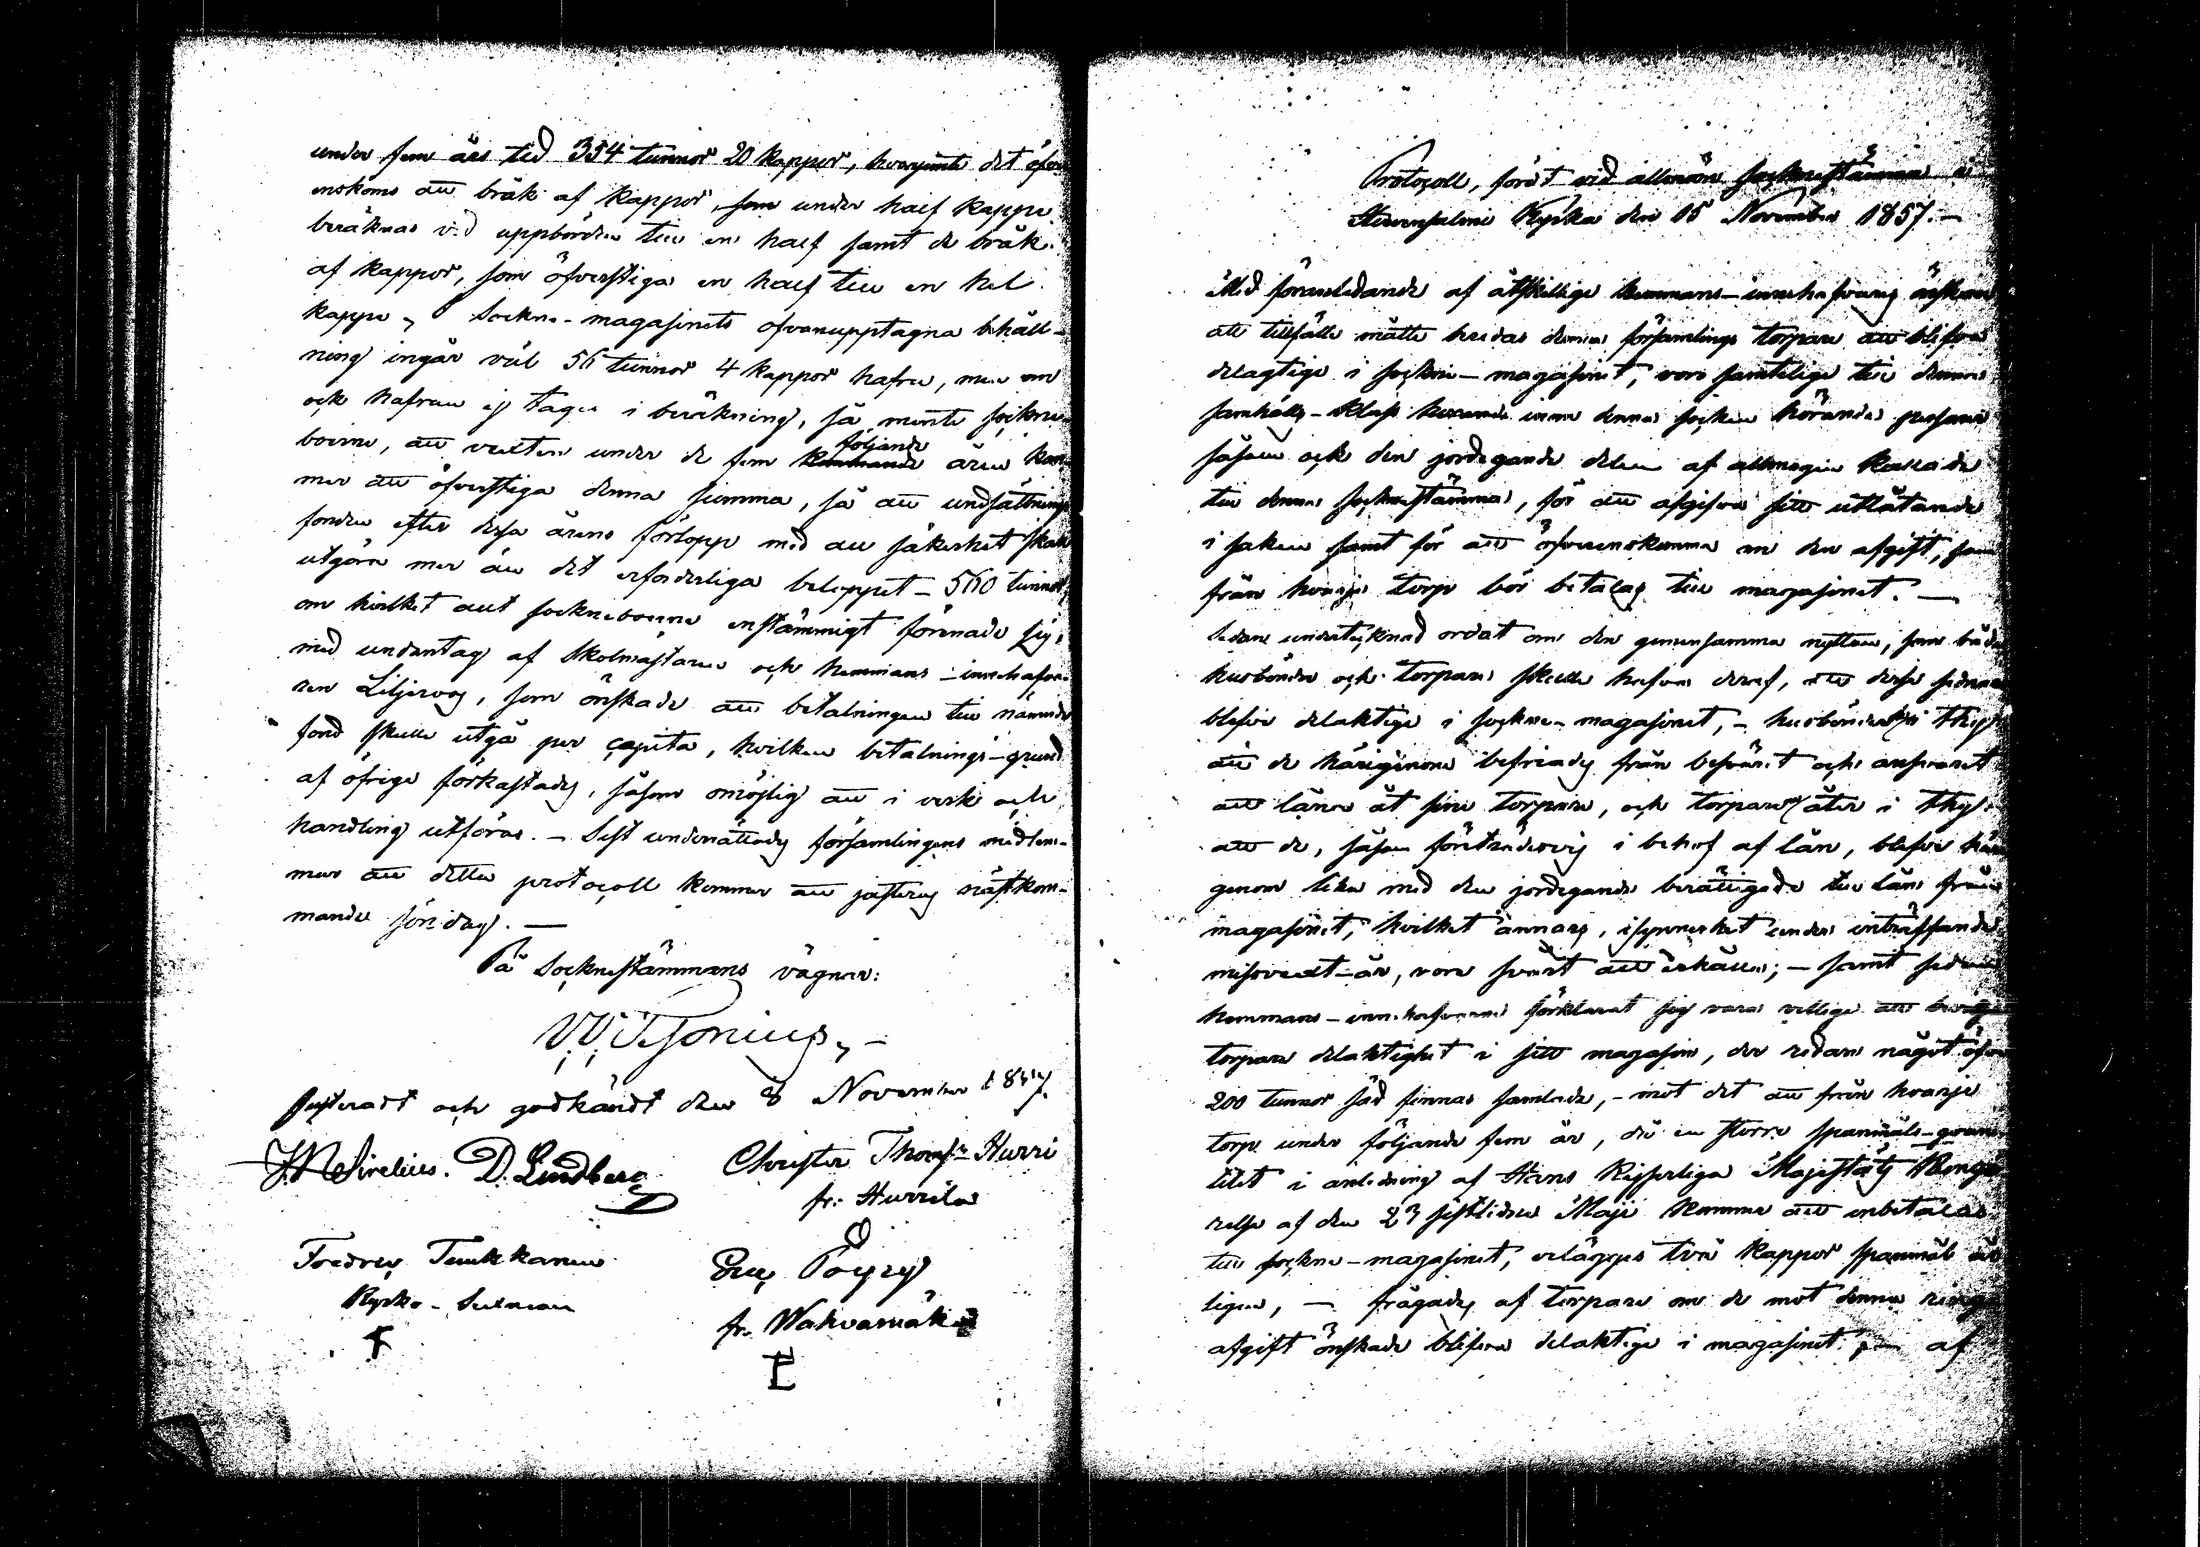 under fem års tid 354 tunnor 20 kappor, hvarjemte det öfver
enskoms att bråk af kappor, som under half kappe
beräknas vid uppbörden till en half samt de bråk
af kappor, som öfverstiga en half till en hel
kappe, Sockne-magasinets ofvanupptagna behåll-
ning ingår väl 56 tunnor 4 kappor hafre, men om
ock hafran ej tages i beräkning, så mente sockne
boerne, att vexten under de fem följande åren kom-
mer att öfverstiga denna summa, så att undsättnings
fonden efter dessa årens förlopp med all säkerhet skall
utgöra mer än det erforderliga beloppet - 560 tunnor
om hvilket allt socknboerne enstämmigt förenade sig,
med undantag af Skolmästaren och hemmans-innehafva-
ren Liljerog, som önskade att betalningen till nämnde
fond skulle utgå per capita, hvilken betalnings-grund
af öfrige förkastades, såsom omöjlig att i verk och
handling utföras. - Sist underrättades församlingens medlem-
mar att detta protocoll kommer att justeras nästkom-
mande söndag. -
På Socknestämmans vägnar:
Justeradt och godkändt den 8 November 1857.
J. N. Sirelius. D. Lindberg
Christer Thomss: Hurri
fr. Hurrila
Fredric Tuukkanen
Kyrko-
Eric Pöyry
fr. Wahvamäki
Protocoll, fördt vid allmän socknestämma i
Kyrka den 15 November 1857. -
Med föranledande af åtskillige hemmans-innehafvares önskan
att tillfälle måtte beredas denna församlings torpare att blifva
delagtige i sockne-magasinet, voro samtelige till denna
samhälls-klass inom denna socken hörande personer
såsom ock den jordegande delen af allmogen kallade
till denna socknestämma, för att afgifva sitt utlåtande
i saken samt för att öfverenskomma om den afgift, som
från hvarje torp bör betalas till magasinet. -
Sedan undertecknad ordat om den gemensamma nyttan, som både
husbönder och torpare skulle hafva deraf, att desse sednare
blefve delaktige i sockne-magasinet, - husbönderne i thy
att de härigenom befriades från besväret och ansvaret
att låna åt sine torpare, och torparne åter i thy
att de, såsom företrädesvis i behof af lån, blefve häri
genom lika med den jordegande berättigade till lån från
magasinet, hvilket annars, isynnerhet under inträffande
missvext-år, vore svårt att erhålla; - samt sedan
hemmans-innehafvarne förklarat sig vara villige att bevilja
torpare delaktighet i sitt magasin, der redan något öfver
200 tunnor säd finnas samlade, - mot det att från hvarje
torp under följande fem år, då en större spanmåls-quan-
titet i anledning af Hans Kejserliga Majestäts
relse af den 23 sistlidne Maji kommer att inbetalas
till sockne-magasinet, erlägges två kappor spanmål år
ligen, - frågades af torpare om de mot denna ringa
afgift önskade blifva delaktige i magasinet. - af